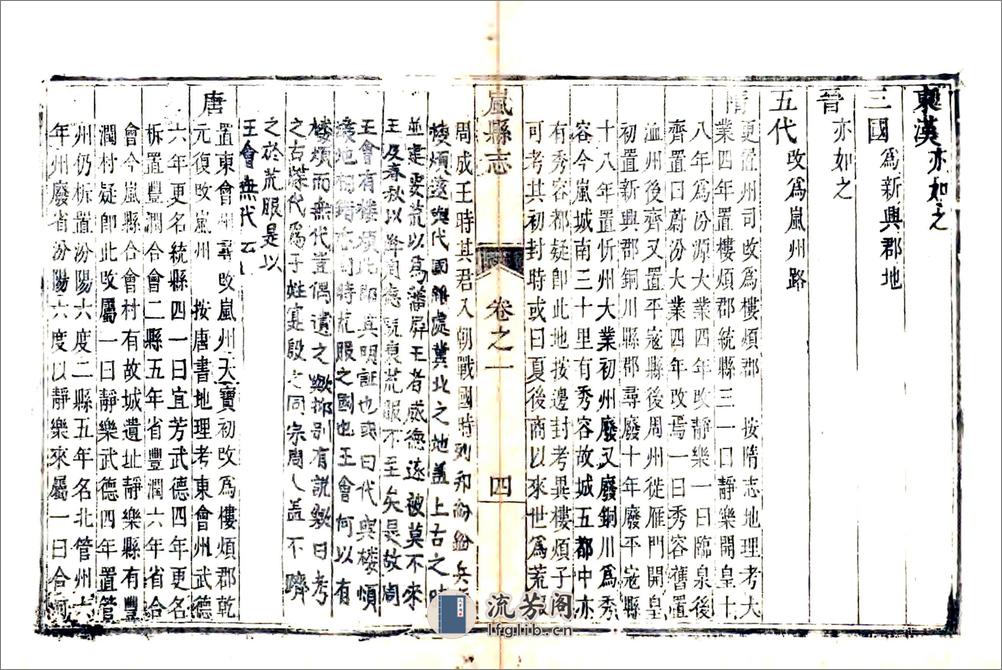 東漢亦如之
三國為新興郡地
晉亦如之
五代改為嵐州路
隋更置州司改為樓煩郡 按隋志地理考大
業四年置樓煩郡統縣三一曰靜樂開皇十
八年為汾源大業四年改靜樂一曰臨泉後
齊置曰蔚汾大業四年改焉一曰秀容舊置
㳑州後齊又置平寇縣後周州徙雁門開皇
初置新興郡銅川縣郡尋廢十年廢平寇縣
十八年置忻州大業初州廢又廢銅川為秀
容今嵐城南三十里有秀容故城五都中亦
有秀容都疑卽此地按邊封考異樓煩子
可考其初封時或曰夏後商以來世為荒
嵐縣志 卷之一 四
周成王時其君入朝戰國時列邦紛紛兵
樓煩遂與代國雜處冀北之地蓋上古之時
並建要荒以為藩屏王者威德遠被莫不來
王及春秋以降周德既衰荒服不至矣是故周
王會有樓煩此卽其明証也或曰代與樓煩
境地相錯 同時荒服之國也王會何以有
樓煩而無代豈偶遺之歟抑別有說歟曰考
之古 代為子姓 殷之同宗周人蓋不 
之於荒服是以
王會無代云
唐置東會州尋改嵐州天寶初改為樓煩郡乾
元復改嵐州 按唐書地理考東會州武德
六年更名統縣四一曰宜芳武德四年更名
析置豐潤合會二縣五年省豐潤六年省合
會今嵐縣合會村有故城遺址靜樂縣有豐
潤村疑卽此改屬一曰靜樂武德四年置管
州仍析置汾陽六度二縣五年名北管州六
年州廢省汾陽六度以靜樂來屬一曰合河
流芳阁
lfglib.cn